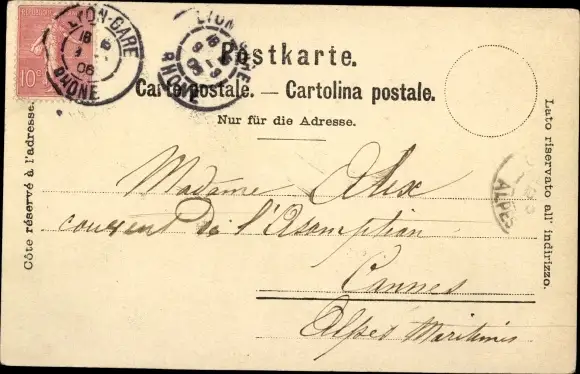 LYON-GARE
RHÔNE
LYON
RHÔNE
10c
Postkarte.
Carte postale. — Cartolina postale.
Nur für die Adresse.
Côte réservé à l'adresse.
Lato riservato all' indirizzo.
Madame Alix
couvent de l'Assomption
Cannes
Alpes Maritimes
ALPES